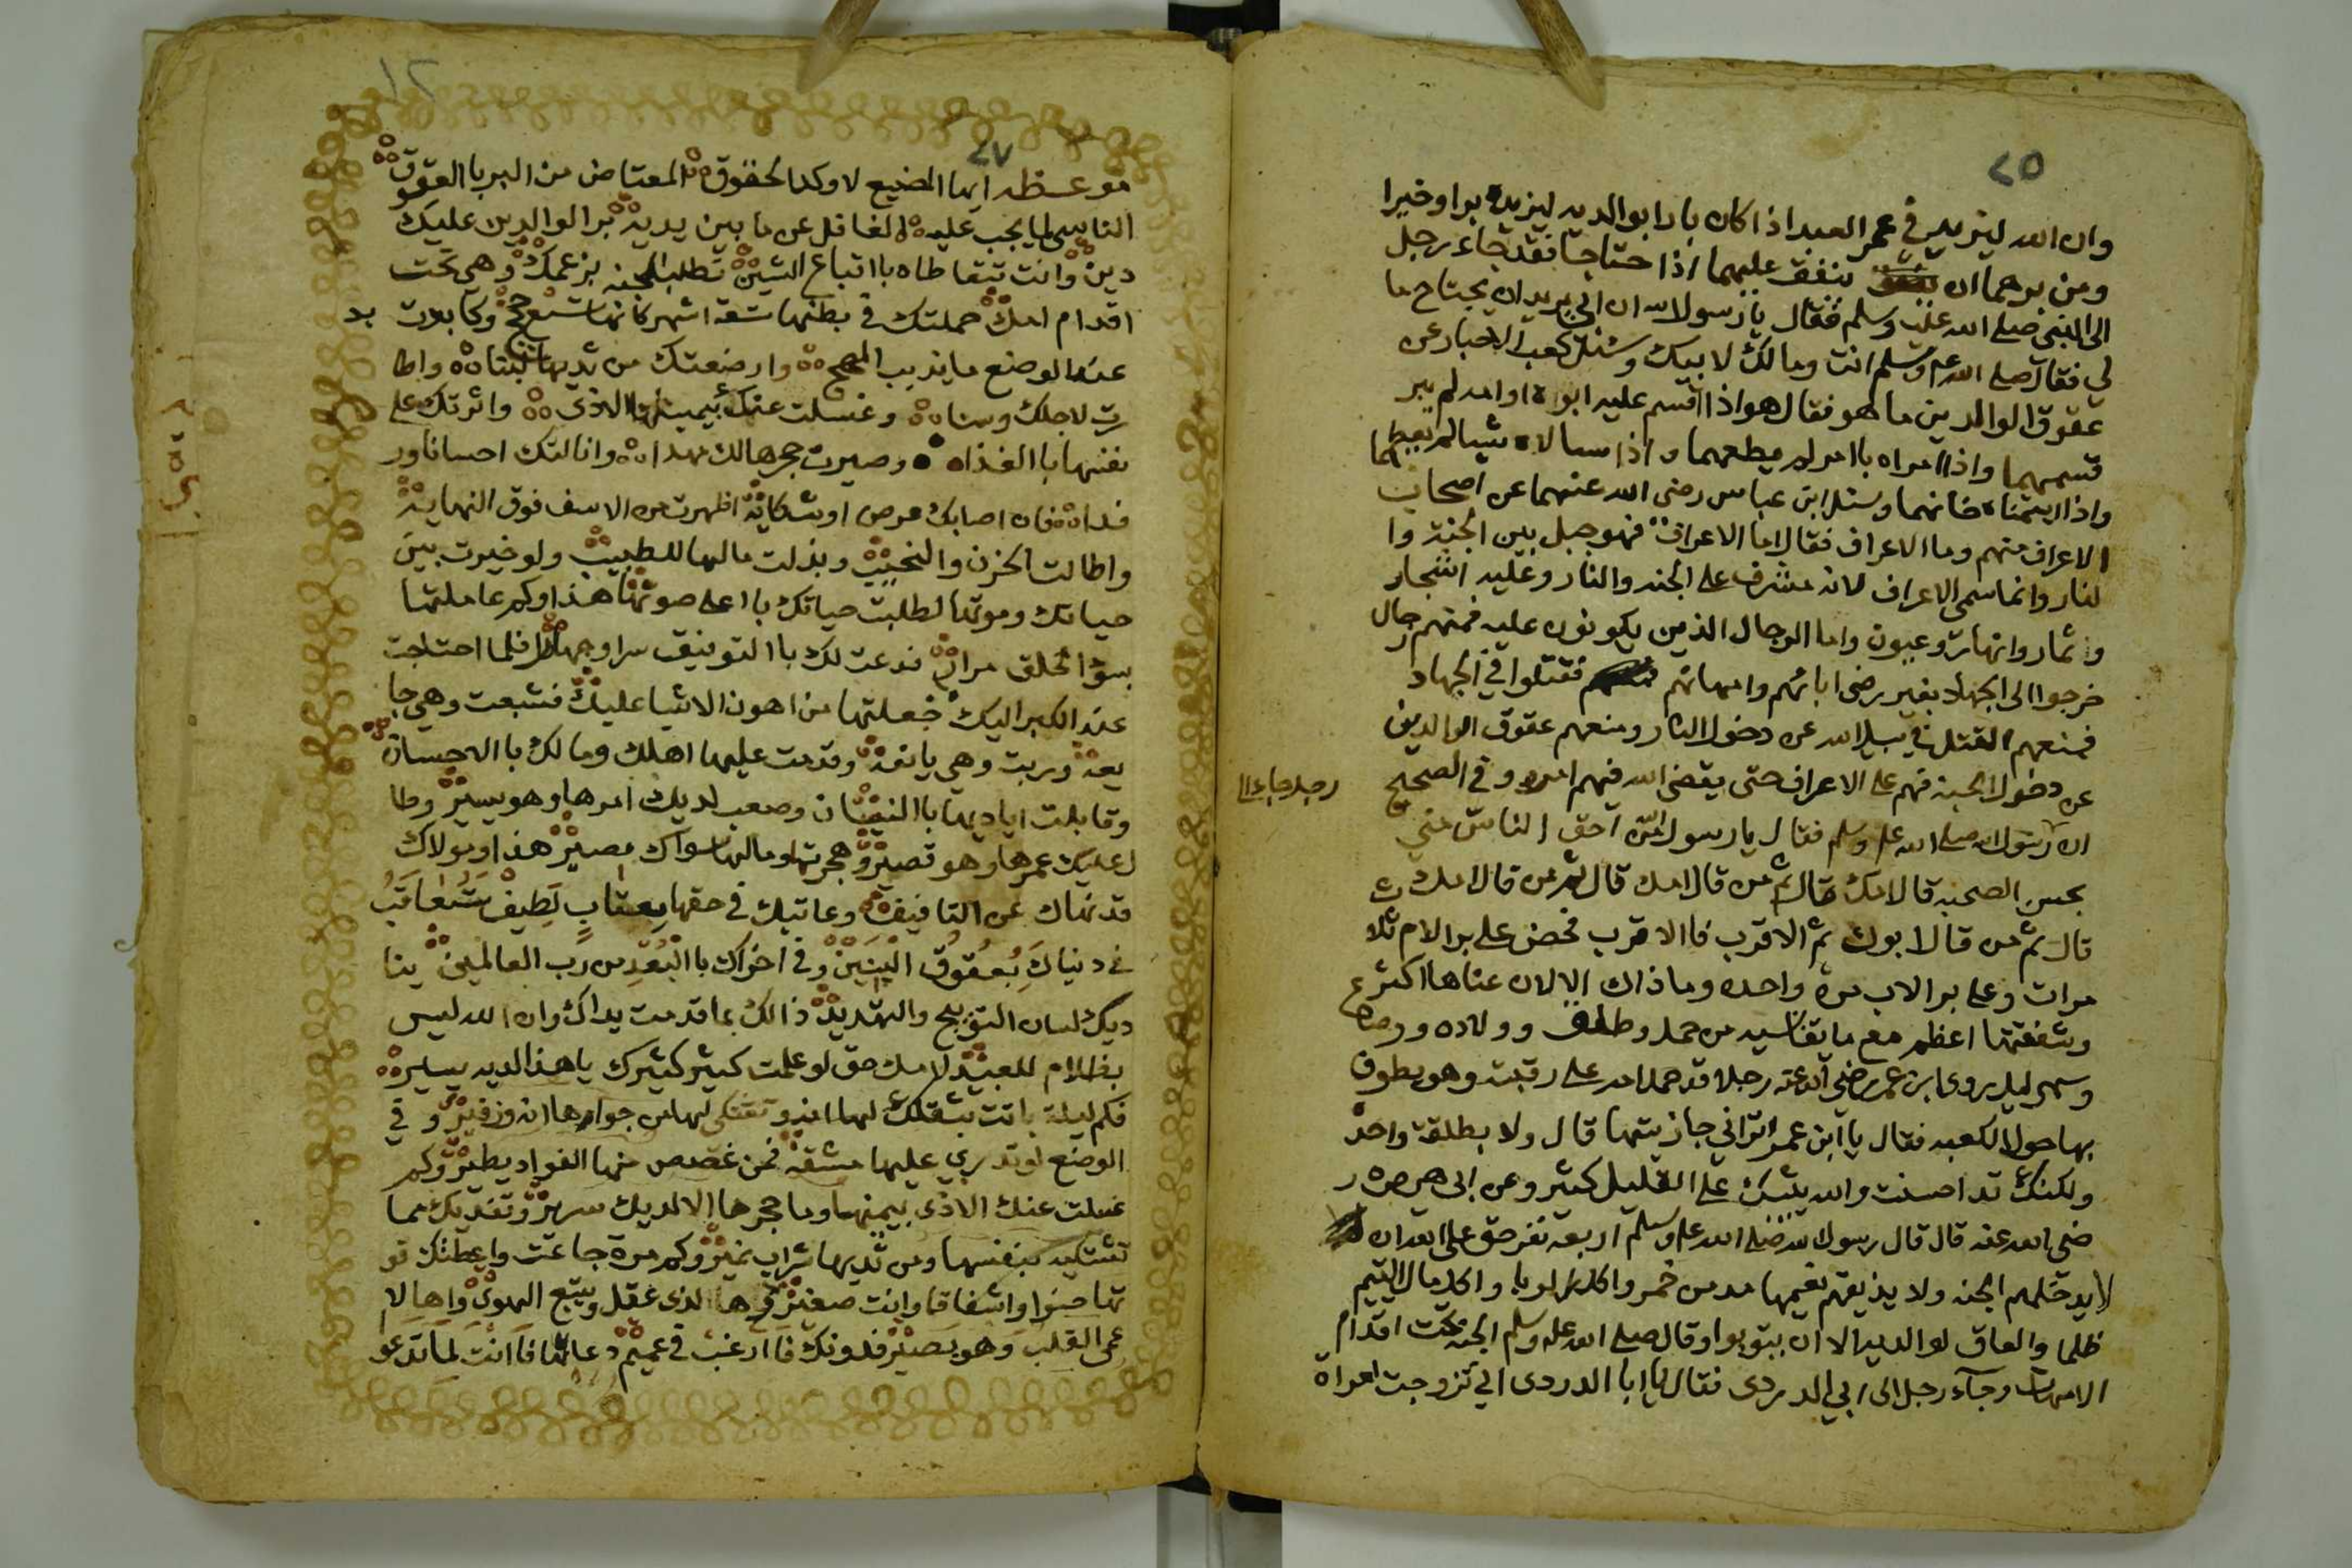 ٢٥
وان الله ليزيد في عمر العبد اذا كان بارا بوالديه ليزيده برا وخيرا
ومن برهما ان ينفق عليهما اذا احتاجا فقد جاء رجل
الى النبي صلى الله عليه وسلم فقال يا رسول الله ان ابي يريد ان يجتاح ما
لي فقال صلى الله عليه وسلم انت ومالك لابيك وسئل كعب الاحبار عن
عقوق الوالدين ما هو فقال هو اذا اقسم عليه ابوه او امه لم يبر
قسمهما واذا امراه باامر لم يطعهما واذا سالاه شيا لم يعطهما
واذا ايتمناه خانهما وسئل ابن عباس رضى الله عنهما عن اصحاب
الاعراف منهم وما الاعراف فقال اما الاعراف فهو جبل بين الجنة وا
لنار وانما سمى الاعراف لانه مشرف على الجنه والنار وعليه اشجار
وثمار وانهار وعيون واما الرجال الذين يكونون عليه فمنهم رجال
خرجوا الى الجهاد بغير رضى ابائهم وامهاتهم فقتلوا في الجهاد
فمنعهم القتل في سبيل الله عن دخول النار ومنعهم عقوق الوالدين
عن دخول الجنة فهم على الاعراف حتى يقضى الله فيهم امره وفي الصحيح
رجلا جاء الى
ان رسول الله صلى الله عليه وسلم فقال يا رسول الله من احق الناس مني
بحسن الصحبه قال امك قال ثم من قال امك قال ثم من قال امك
قال ثم من قال ابوك ثم الاقرب فاالاقرب فحض على بر الام ثلا
مرات وعلى بر الاب مرة واحده وما ذاك الا لان عناها اكثر
وشفقتها اعظم مع ما تقاسيه من حمل وطلق وولاده ورضاع
وسهر ليل روى ابن عمر رضي الله عنه رجلا قد حمل امه على رقبته وهو يطوف
بها حول الكعبه فقال يا ابن عمر اتراني جازيتها قال ولا بطلقة واحدة
ولكنك قد احسنت والله يثيبك على القليل كثير وعن ابي هريره ر
ضى الله عنه قال قال رسول الله صلى الله عليه وسلم اربعة نفر حق على الله ان
لا يدخلهم الجنه ولا يذيقهم نعيمها مدمن خمر واكل الربا واكل مال اليتيم
ظلما والعاق لوالديه الا ان يتوبوا وقال صلى الله عليه وسلم الجنه تحت اقدام
الامهات وجآء رجل الى ابي الدردى فقال يا ابا الدردى اني تزوجت امراة
١٢
٢٧
موعظه ايها المضيع لاوكد الحقوق المعتاض من البر باالعقوق
الناسى لما يجب عليه الغافل عن ما بين يديه بر الوالدين عليك
دين وانت تتعاطاه بااتباع الشين تطلب الجنه بزعمك وهي تحت
اقدام امك حملتك في بطنها تسعة اشهر كانها تسع حجج وكابدت
عند الوضع ما يذيب المهج وارضعتك من ثديها لبنا واطا
رت لاجلك وسنا وغسلت عنك بيمينها الاذى واثرتك على
نفسها باالغذاء وصيرت حجرها لك مهدا وانالتك احسانا ور
فدا فان اصابك مرض او شكاية اظهرت من الاسف فوق النهاية
واطالت الحزن والنحيب وبذلت مالها للطبيب ولو خيرت بين
حياتك وموتها لطلبت حياتك بااعلى صوتها هذا وكم عاملتها
بسؤ الخلق مرارا فدعت لك باالتوفيق سرا وجهارا فلما احتاجت
عند الكبر اليك جعلتها من اهون الاشيا عليك فشبعت وهي جا
يعة ورويت وهي يانعة وقدمت عليها اهلك ومالك باالاحسان
وقابلت اياديها باالنسيان وصعب لديك امرها وهو يسير وطا
ل عليك عمرها وهو قصير وهجرتها ومالها سواك نصير هذا ومولاك
قد نهاك عن التافيف وعاتبك في حقها بعتاب لطيف ستعاقب
في دنياك بعقوق البنين وفي اخراك باالبعد من رب العالمين ينا
ديك لسان التوبيخ والتهديد ذالك بما قدمت يداك وان الله ليس
بظلام للعبيد لامك حق لو علمت كبير كثيرك يا هذا لديه يسير
فكم ليلة باتت بثقلك تشتكي لها من جواها انه وزفير وفي
الوضع لو تدري عليها مشقة فمن غصص منها الفواد يطير وكم
غسلت عنك الاذى بيمينها وما حجرها الا لديك سرير وتفديك مما
تشتكيه بنفسها ومن ثديها شراب نمير وكم مرة جاعت واعطتك قو
تها حنوا واشفاقا وانت صغير فاها لذى عقل ويتبع الهوى واها لا
عمى القلب وهو بصير فدونك فاارغب في عميم دعائها فاانت لما تدعو